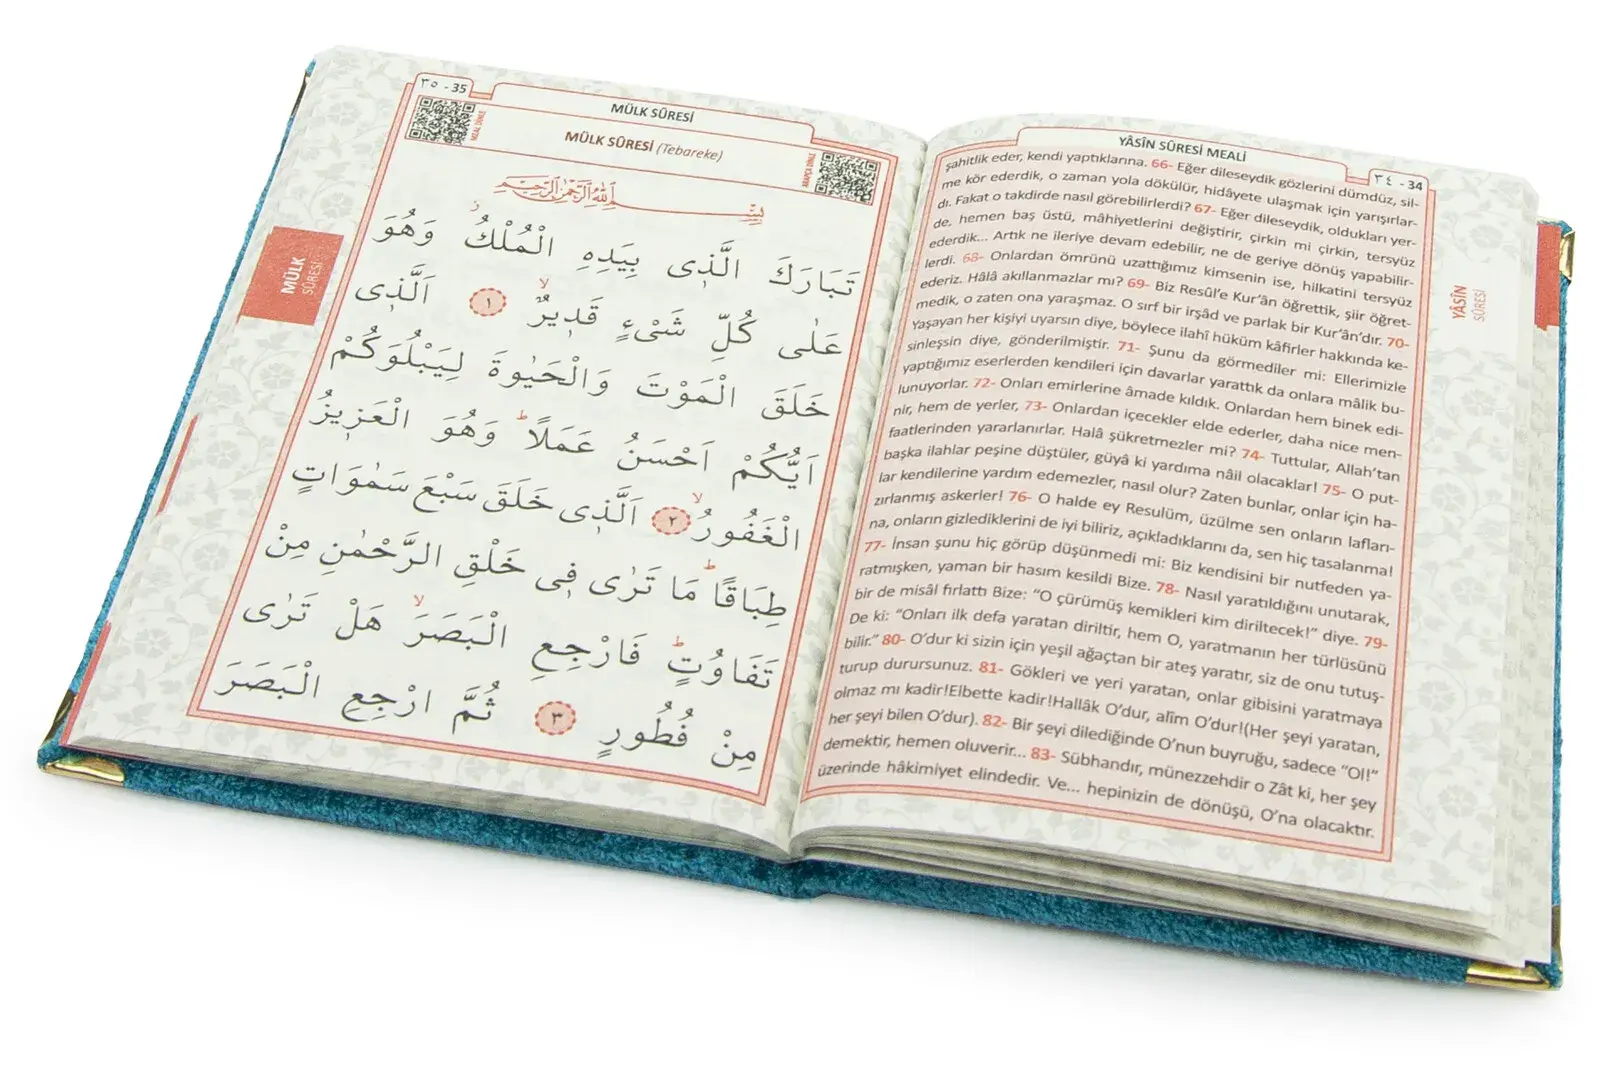 YÂSÎN SÛRESİ MEALİ
٣٤ - 34
şahitlik eder, kendi yaptıklarına. 66- Eğer dileseydik gözlerini dümdüz, sil-
me kör ederdik, o zaman yola dökülür, hidâyete ulaşmak için yarışırlar-
dı. Fakat o takdirde nasıl görebilirlerdi? 67- Eğer dileseydik, oldukları yer-
de, hemen baş üstü, mâhiyetlerini değiştirir, çirkin mi çirkin, tersyüz
ederdik... Artık ne ileriye devam edebilir, ne de geriye dönüş yapabilir-
lerdi. 68- Onlardan ömrünü uzattığımız kimsenin ise, hilkatini tersyüz
ederiz. Hâlâ akıllanmazlar mı? 69- Biz Resûl'e Kur'ân öğrettik, şiir öğret-
medik, o zaten ona yaraşmaz. O sırf bir irşâd ve parlak bir Kur'ân'dır. 70-
Yaşayan her kişiyi uyarsın diye, böylece ilahî hüküm kâfirler hakkında ke-
sinleşsin diye, gönderilmiştir. 71- Şunu da görmediler mi: Ellerimizle
yaptığımız eserlerden kendileri için davarlar yarattık da onlara mâlik bu-
lunuyorlar. 72- Onları emirlerine âmade kıldık. Onlardan hem binek edi-
nir, hem de yerler, 73- Onlardan içecekler elde ederler, daha nice men-
faatlerinden yararlanırlar. Halâ şükretmezler mi? 74- Tuttular, Allah'tan
başka ilahlar peşine düştüler, güyâ ki yardıma nâil olacaklar! 75- O put-
lar kendilerine yardım edemezler, nasıl olur? Zaten bunlar, onlar için ha-
zırlanmış askerler! 76- O halde ey Resulüm, üzülme sen onların lafları-
na, onların gizlediklerini de iyi biliriz, açıkladıklarını da, sen hiç tasalanma!
77- İnsan şunu hiç görüp düşünmedi mi: Biz kendisini bir nutfeden ya-
ratmışken, yaman bir hasım kesildi Bize. 78- Nasıl yaratıldığını unutarak,
bir de misâl fırlattı Bize: “O çürümüş kemikleri kim diriltecek!” diye. 79-
De ki: “Onları ilk defa yaratan diriltir, hem O, yaratmanın her türlüsünü
bilir.” 80- O'dur ki sizin için yeşil ağaçtan bir ateş yaratır, siz de onu tutuş-
turup durursunuz. 81- Gökleri ve yeri yaratan, onlar gibisini yaratmaya
olmaz mı kadir!Elbette kadir!Hallâk O'dur, alîm O'dur!(Her şeyi yaratan,
her şeyi bilen O'dur). 82- Bir şeyi dilediğinde O'nun buyruğu, sadece “Ol!”
demektir, hemen oluverir... 83- Sübhandır, münezzehdir o Zât ki, her şey
üzerinde hâkimiyet elindedir. Ve... hepinizin de dönüşü, O'na olacaktır.
YÂSÎN
SÛRESİ
٣٥ - 35
MÜLK SÛRESİ
MEAL DİNLE
MÜLK SÛRESİ (Tebareke)
ARAPÇA DİNLE
بِسْــمِ اللّٰهِ الرَّحْمٰنِ الرَّحٖيمِ
تَبَارَكَ الَّذٖى بِيَدِهِ الْمُلْكُ ز وَهُوَ
عَلٰى كُلِّ شَىْءٍ قَدٖيرٌ لا ١ اَلَّذٖى
خَلَقَ الْمَوْتَ وَالْحَيٰوةَ لِيَبْلُوَكُمْ
اَيُّكُمْ اَحْسَنُ عَمَلًا ط وَهُوَ الْعَزٖيزُ
الْغَفُورُ لا ٢ اَلَّذٖى خَلَقَ سَبْعَ سَمٰوَاتٍ
طِبَاقًا ط مَا تَرٰى فٖى خَلْقِ الرَّحْمٰنِ مِنْ
تَفَاوُتٍ ط فَارْجِعِ الْبَصَرَ لا هَلْ تَرٰى
مِنْ فُطُورٍ ٣ ثُمَّ ارْجِعِ الْبَصَرَ
MÜLK
SÛRESİ